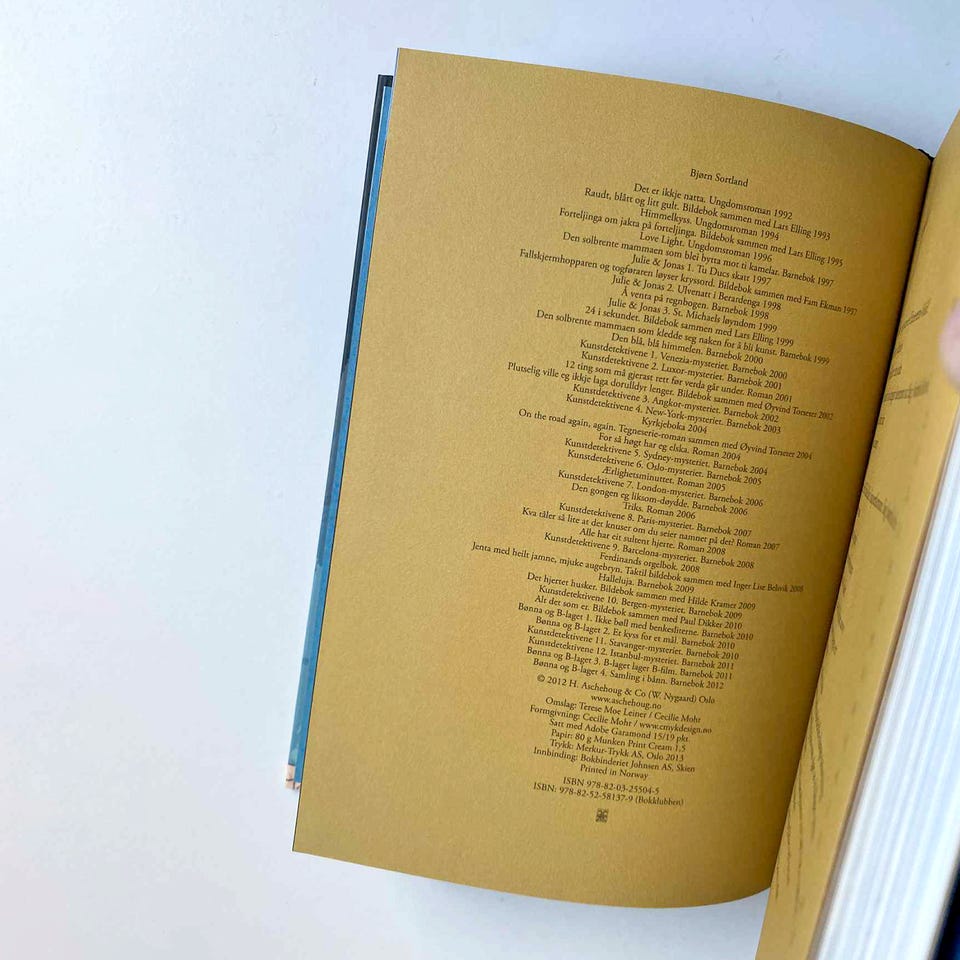 Bjørn Sortland
Det er ikkje natta. Ungdomsroman 1992
Raudt, blått og litt gult. Bildebok sammen med Lars Elling 1993
Himmelkyss. Ungdomsroman 1994
Forteljinga om jakta på forteljinga. Bildebok sammen med Lars Elling 1995
Love Light. Ungdomstoman 1996
Den solbrente mammaen som blei bytta mot ti kamelar. Barnebok 1997
Julie & Jonas 1. Tu Ducs skatt 1997
Fallskjermhopparen og togføraren løyser kryssord. Bildebok sammen med Fam Ekman 1997
Julie & Jonas 2. Ulvenatt i Berardenga 1998
Å venta på regnbogen. Barnebok 1998
Julie & Jonas 3. St. Michaels løyndom 1999
24 i sekundet. Bildebok sammen med Lars Elling 1999
Den solbrente mammaen som kledde seg naken for å bli kunst. Barnebok 1999
Den blå, blå himmelen. Barnebok 2000
Kunstdetektivene 1. Venezia-mysteriet. Barnebok 2000
Kunstdetektivene 2. Luxor-mysteriet. Barnebok 2001
12 ting som må gjerast rett før verda går under. Roman 2001
Plutselig ville eg ikkje laga dorulldyr lenger. Bildebok sammen med Øyvind Torseter 2002
Kunstdetektivene 3. Angkor-mysteriet. Barnebok 2002
Kunstdetektivene 4. New-York-mysteriet. Barnebok 2003
Kyrkjeboka 2004
On the road again, again. Tegneserie-roman sammen med Øyvind Torseter 2004
For så høgt har eg elska. Roman 2004
Kunstdetektivene 5. Sydney-mysteriet. Barnebok 2004
Kunstdetektivene 6. Oslo-mysteriet. Barnebok 2005
Ærlighetsminuttet. Roman 2005
Kunstdetektivene 7. London-mysteriet. Barnebok 2006
Den gongen eg liksom-døydde. Barnebok 2006
Triks. Roman 2006
Kunstdetektivene 8. Paris-mysteriet. Barnebok 2007
Kva tåler så lite at det knuser om du seier namnet på det? Roman 2007
Alle har eit sultent hjerte. Roman 2008
Kunstdetektivene 9. Barcelona-mysteriet. Barnebok 2008
Ferdinands orgelbok. 2008
Jenta med heilt jamne, mjuke augebryn. Taktil bildebok sammen med Inger Lise Belsvik 2008
Halleluja. Barnebok 2009
Det hjertet husker. Bildebok sammen med Hilde Kramer 2009
Kunstdetektivene 10. Bergen-mysteriet. Barnebok 2009
Alt det som er. Bildebok sammen med Paul Dikker 2010
Bønna og B-laget 1. Ikke bøll med benkesliterne. Barnebok 2010
Bønna og B-laget 2. Et kyss for et mål. Barnebok 2010
Kunstdetektivene 11. Stavanger-mysteriet. Barnebok 2010
Kunstdetektivene 12. Istanbul-mysteriet. Barnebok 2011
Bønna og B-laget 3. B-laget laget B-film. Barnebok 2011
Bønna og B-laget 4. Samling i bånn. Barnebok 2012
© 2012 H. Aschehoug & Co (W. Nygaard) Oslo
www.aschehoug.no
Omslag: Terese Moe Leiner / Cecilie Mohr
Formgivning: Cecilie Mohr / www.cmykdesign.no
Satt med Adobe Garamond 15/19 pkt.
Papir: 80 g Munken Print Cream 1,5
Trykk: Merkur-Trykk AS, Oslo 2013
Innbinding: Bokbinderiet Johnsen AS, Skien
Printed in Norway
ISBN 978-82-03-25504-5
ISBN: 978-82-52-58137-9 (Bokklubben)